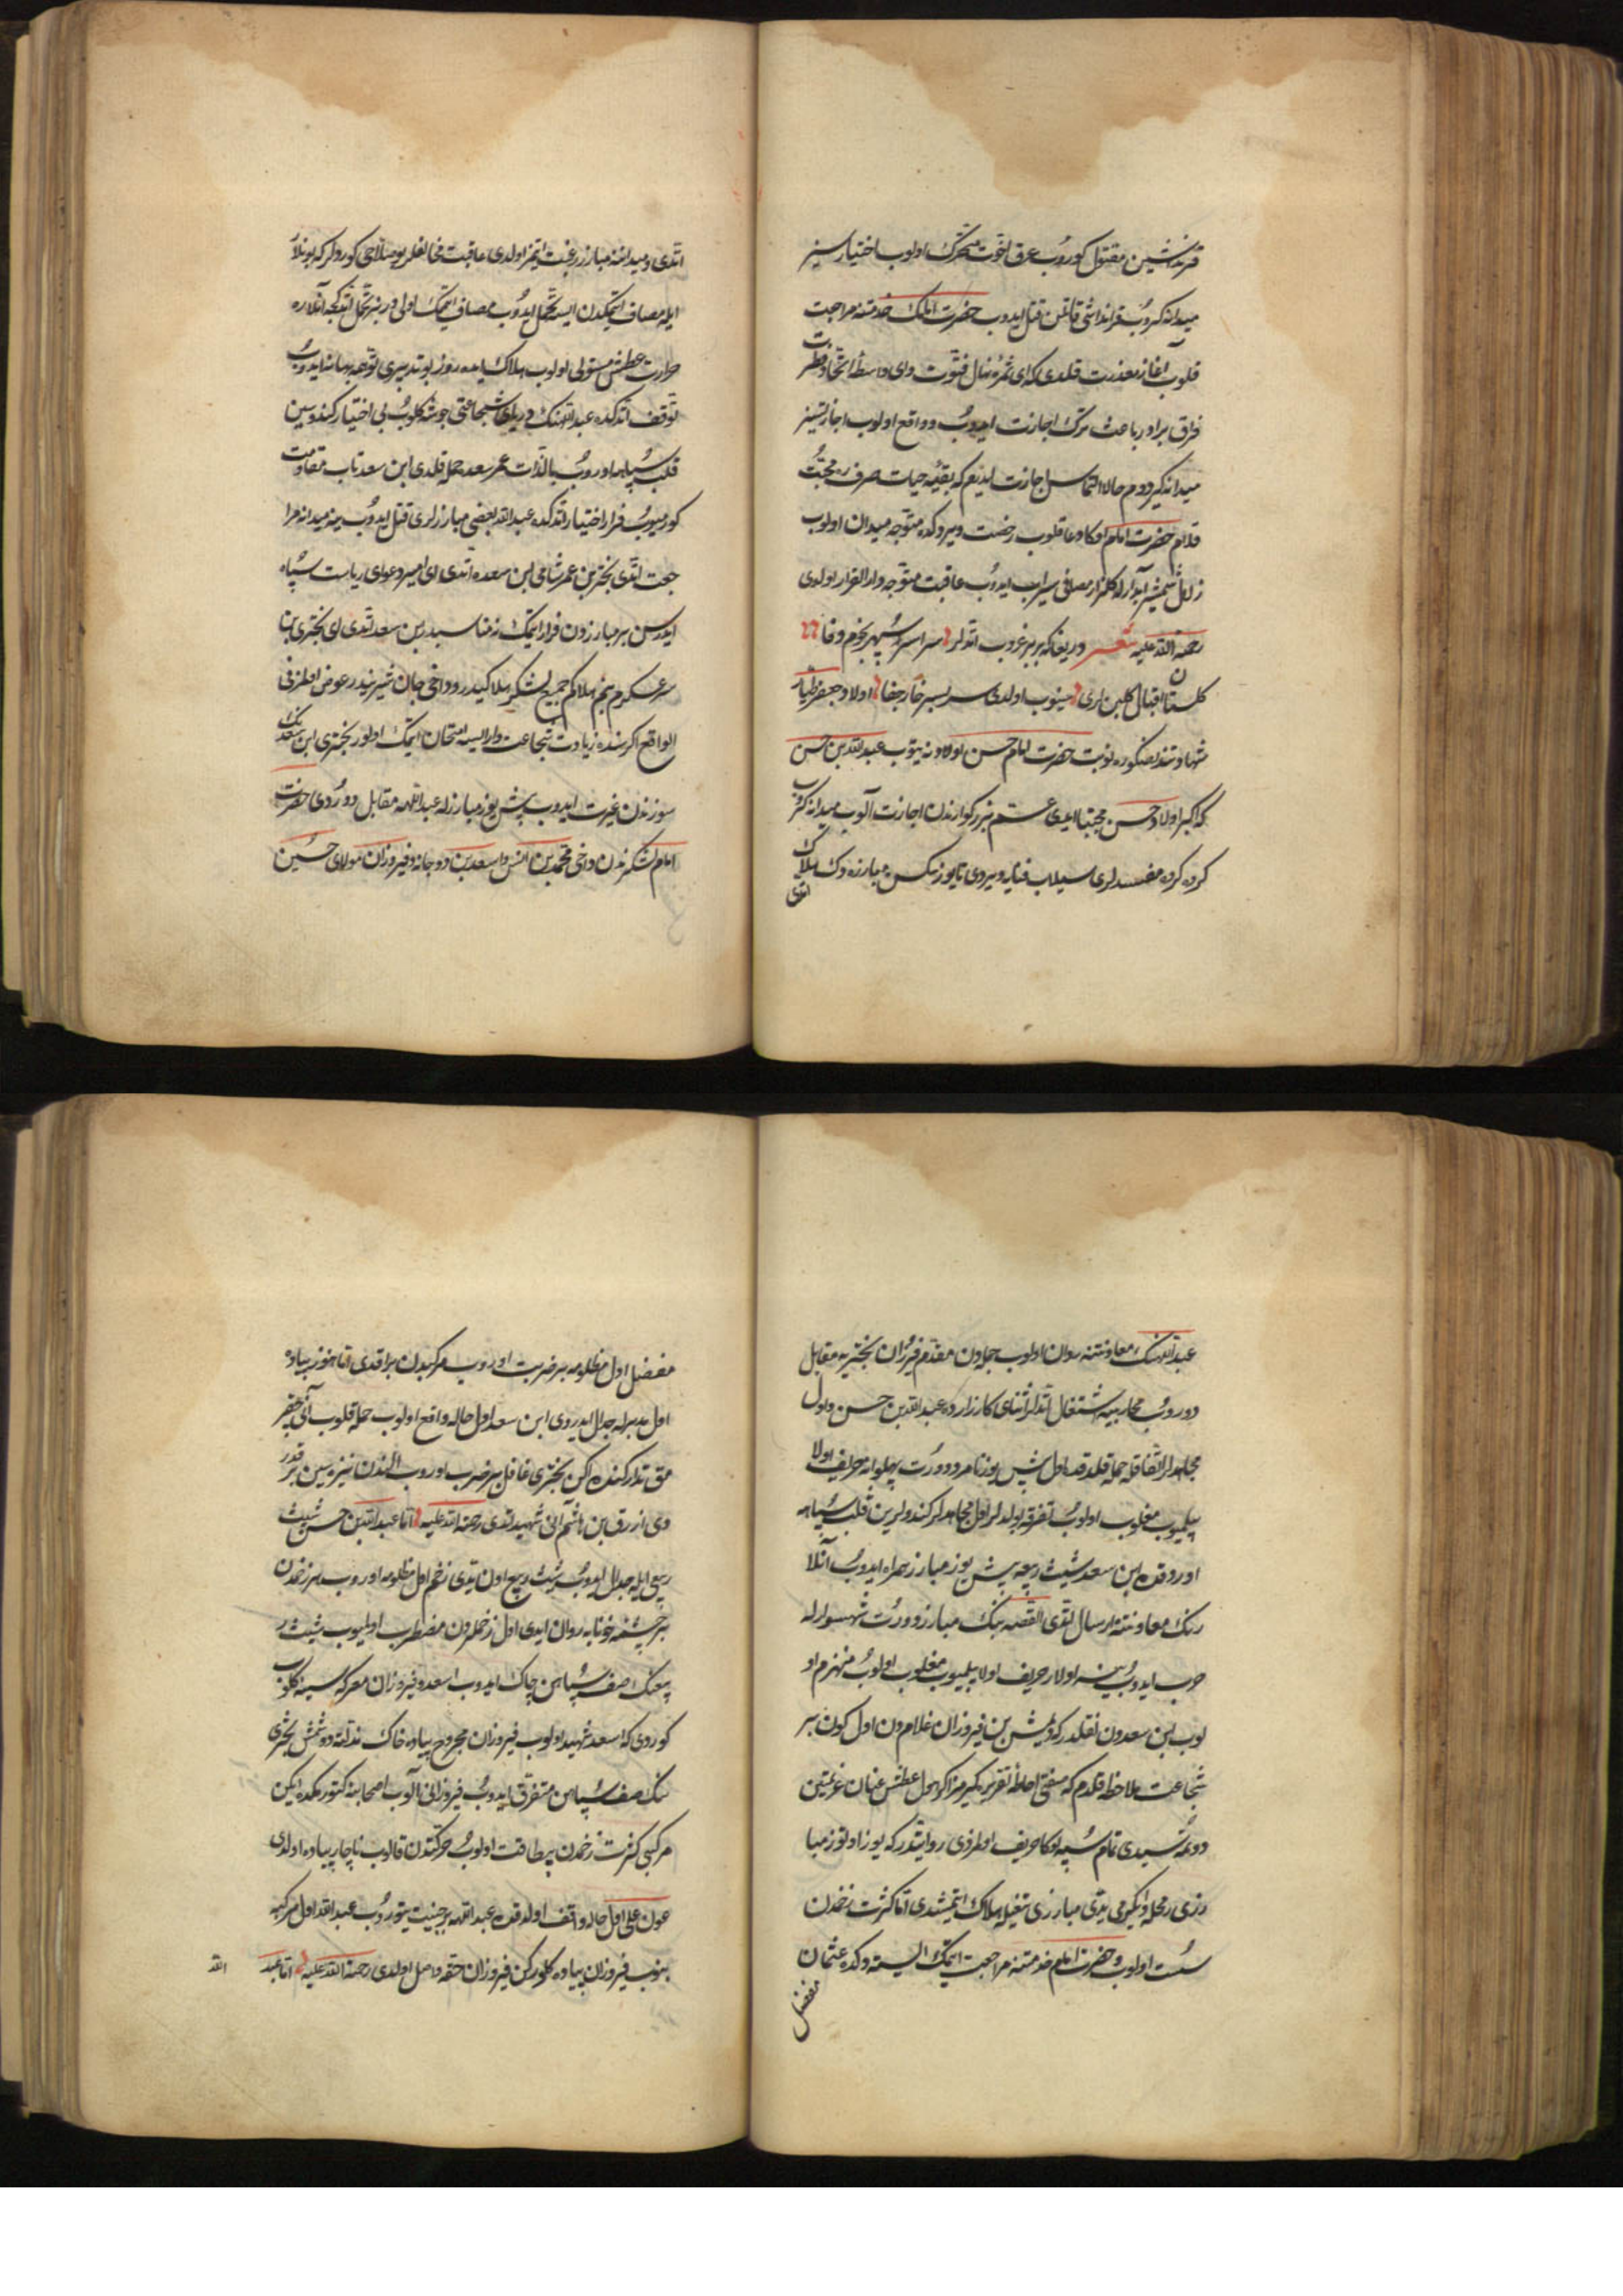 قرنداشین مقتول کوروب عرق اخوت متحرک اولوب اختیارسیز
میدانه کیروب قرانداشی قاتلن قتل ایدوب حضرت امامک خدمتنه مراجعت
قلوب آغاز معذرت قلدی که ای ثمره نهال فتوت وای واسطه اتحاد فطرت
فراق برادر باعث ترک اجازت ایدوب و واقع اولوب اجازتسیز
میدانه کیردوم حالا التماس اجازت ایدیرم که بقیه حیات صرف ره محبت
قلام حضرت امام اوکا دعا قلوب رخصت ویردکده متوجه میدان اولوب
زلال شمشیر آبدارله کلزار مصافی سیراب ایدوب عاقبت متوجه دار القرار اولدی
رحمة الله علیه شعر دریغا که بربر غروب اتدلر سراسر سپهر نجوم وفا
کلستان اقبال کلبن لری سینوب اولدی سر بسر خار جفا اولاد جعفر طیار
شهادتندنصکوره نوبت حضرت امام حسن اولادنه یتوب عبدالله بن حسن
که اکبر اولاد حسن مجتبا ایدی عم بزرکوارندن اجازت آلوب میدانه کیروب
کرده کرده مفسدلری سیلاب فنایه ویردی تا یوز سکسن مبارزه دک هلاک
اتدی
اتدی و میداننه مبارز رغبت ایتمز اولدی عاقبت مخالفلر بو صلاحی کوردلر که بونلار
ایله مصاف ایتمکدن ایسه تحمل ایدوب مصاف ایتمک اولی در بز تحمل اتدکجه آنلاره
حرارت عطش مستولی اولوب هلاک ایده روز بو تدبیری توجهه بهانه ایدوب
توقف اتدکده عبداللهنک دریای شجاعتی جوشه کلوب بی اختیار کندوسین
قلب سپاهه اوروب بالذات عمر سعده حمله قلدی ابن سعد تاب مقاومت
کورمیوب فرار اختیار اتدکده عبدالله بعضی مبارزلری قتل ایدوب ینه میدانه مرا
جعت اتدی بختری بن عمر شامی ابن سعده اتدی ای امیر دعوای ریاست سپاه
ایدرسن بر مبارزدن فرار ایتمک نه مناسبدر بن سعد اتدی ای بختری بن
سرعسکرم بنم هلاکم جمیع لشکر هلاکیدر و داخی جان شیریندر عوض اولمز فی
الواقع اکر سنده زیادت شجاعت وار ایسه امتحان ایتمک اولور بختری ابن سعدنک
سوزندن غیرت ایدوب بش یوز مبارزله عبداللهه مقابل دوردی حضرت
امام لشکرندن داخی محمد بن انس و اسعد بن دوجانه و فیروزان مولای حسین
عبداللهنک معاونتنه روان اولوب جمله‌دن مقدم فیروزان بختریه مقابل
دوروب محاربیه اشتغال اتدلر اثنای کارزارده عبدالله بن حسن و اول
مجاهدلر اتفاقله حمله قلدقده اول بش یوز نامرد دورت پهلوانه حریف اولا
بیلمیوب مغلوب اولوب تفرقه بولدلر اول مجاهدلر کندولرین قلب سپاهه
اوردقده ابن سعد شیث ربعیه بش یوز مبارز همراه ایدوب آنلا
رنک معاونتنه ارسال اتدی القصه بنک مبارز دورت شهسوارله
حرب ایدوب ینه اولار حریف اولا بیلمیوب مغلوب اولوب منهزم او
لوب بن سعددن نقلدر که دیمش بن فیروزان غلامدن اول کون بر
شجاعت ملاحظه قلدم که مفتی احاطه تقریره کیرمز اکر اول عطش عنان عزیمتین
دوتمه‌سیدی تمام سپه اوکا حریف اولمزدی روایتدر که یوز اوتوز مبا
رزی رمحله و یکرمی یدی مبارزی تیغیله هلاک ایتمیشدی اما کثرت زخمدن
سست اولوب و حضرت امام خدمتنه مراجعت ایتمک ایستدکده عثمان
مفضل
مفضل اول مظلومه بر ضربت اوروب مرکبدن براقدی اما هنوز پیاده
اول مدبرله جدال ایدردی ابن سعد اول حاله واقع اولوب حمله قلوب آنی چیقر
مق تدارکنده ایکن بختری غافل بر ضرب اوروب الندن نیزه‌سین بر قدر
دی ازرق بن هاشم آنی شهید اتدی رحمة الله علیه اما عبدالله بن حسن شیث
ربیعی ایله جدال ایدوب شیث ربیع اون یدی زخم اول مظلومه اوروب هر زخمدن
بر چشمه خونابه روان ایدی اول زخملردن مضطرب اولمیوب شیث ر
بیعنک صف سپاهن چاک ایدوب اسعد و فیروزان معرکه‌سینه کلوب
کوردی که اسعد شهید اولوب فیروزان مجروح پیاده خاک مذلته دوشمش بختری
نک صف سپاهن متفرق ایدوب فیروزانی آلوب اصحابنه کتورمکده ایکن
مرکبی کثرت زخمدن بیطاقت اولوب حرکتدن قالوب ناچار پیاده اولدی
عون علی اول حاله واقف اولدقده عبداللهه بر جنیبت یتوروب عبدالله اول مرکبه
بنوب فیروزان پیاده کلورکن فیروزان حقه واصل اولدی رحمة الله علیه اما عبد
الله